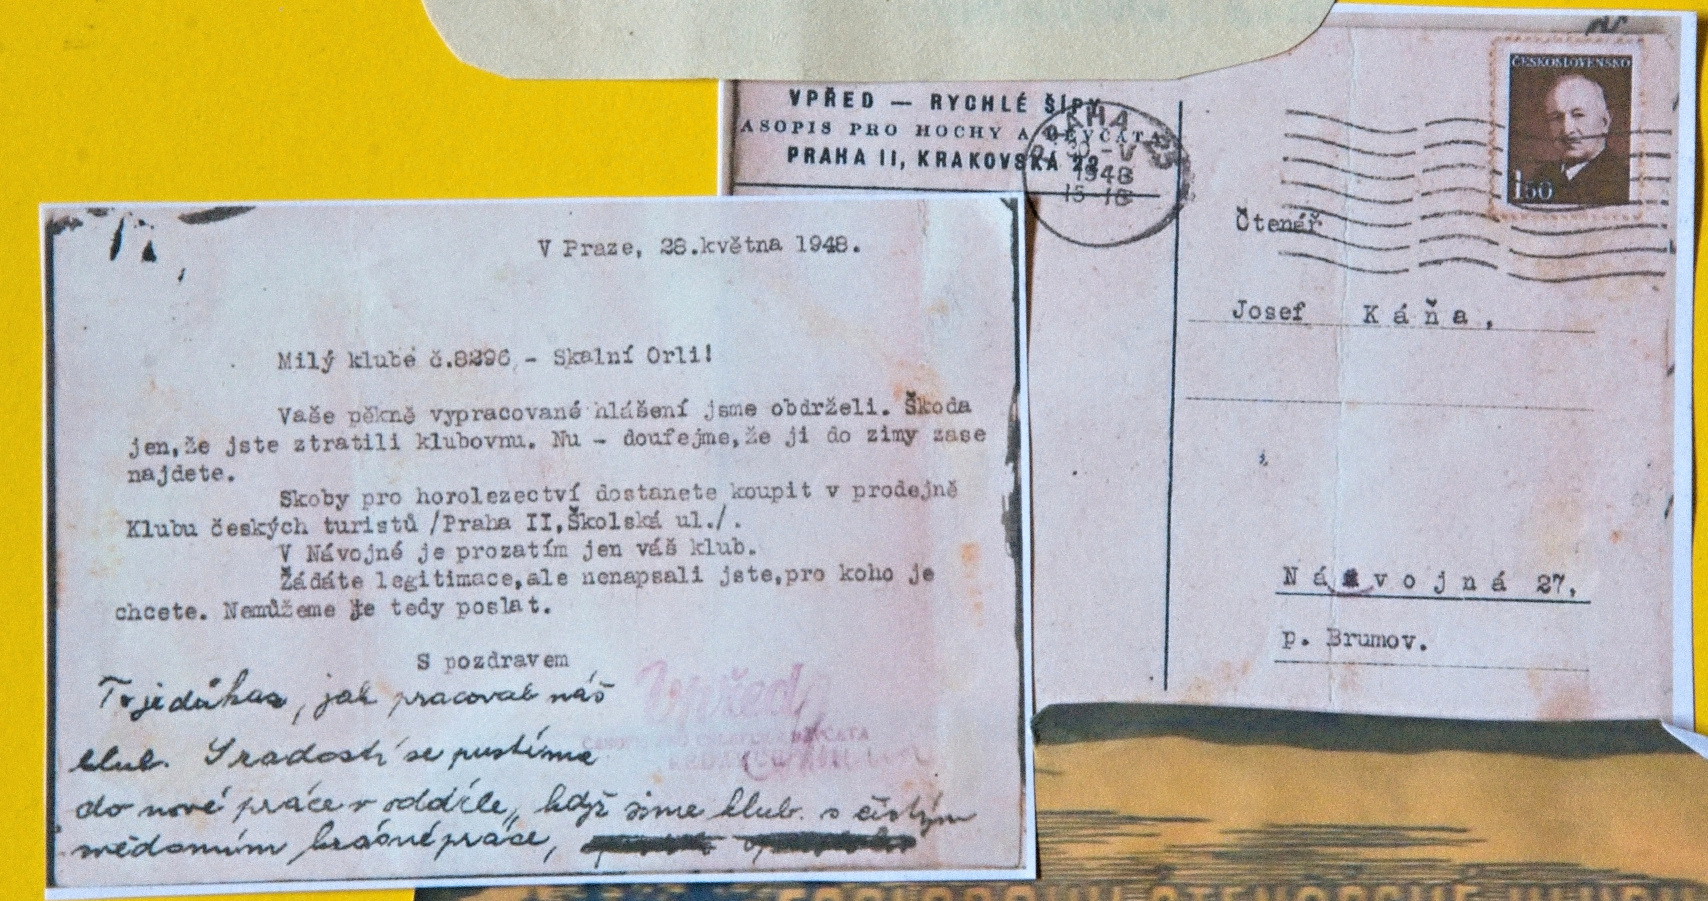 VPŘED — RYCHLÉ ŠÍPY
ASOPIS PRO HOCHY A DĚVČATA
PRAHA II, KRAKOVSKÁ 22
PRAHA 25
30 - V
1948
15-16
ČESKOSLOVENSKO
1.50
Čtenář
Josef Káňa,
Návojná 27,
p. Brumov.
V Praze, 28.května 1948.
Milý klube č.8296 - Skalní Orli!
Vaše pěkně vypracované hlášení jsme obdrželi. Škoda
jen,že jste ztratili klubovnu. Nu - doufejme,že ji do zimy zase
najdete.
Skoby pro horolezectví dostanete koupit v prodejně
Klubu českých turistů /Praha II,Školská ul./.
V Návojné je prozatím jen váš klub.
Žádáte legitimace,ale nenapsali jste,pro koho je
chcete. Nemůžeme je tedy poslat.
S pozdravem
To je důkaz, jak pracoval náš
klub. S radostí se pustíme
do nové práce v oddíle, když sime klub. s čistým
svědomím krásné práce,
Vpřed